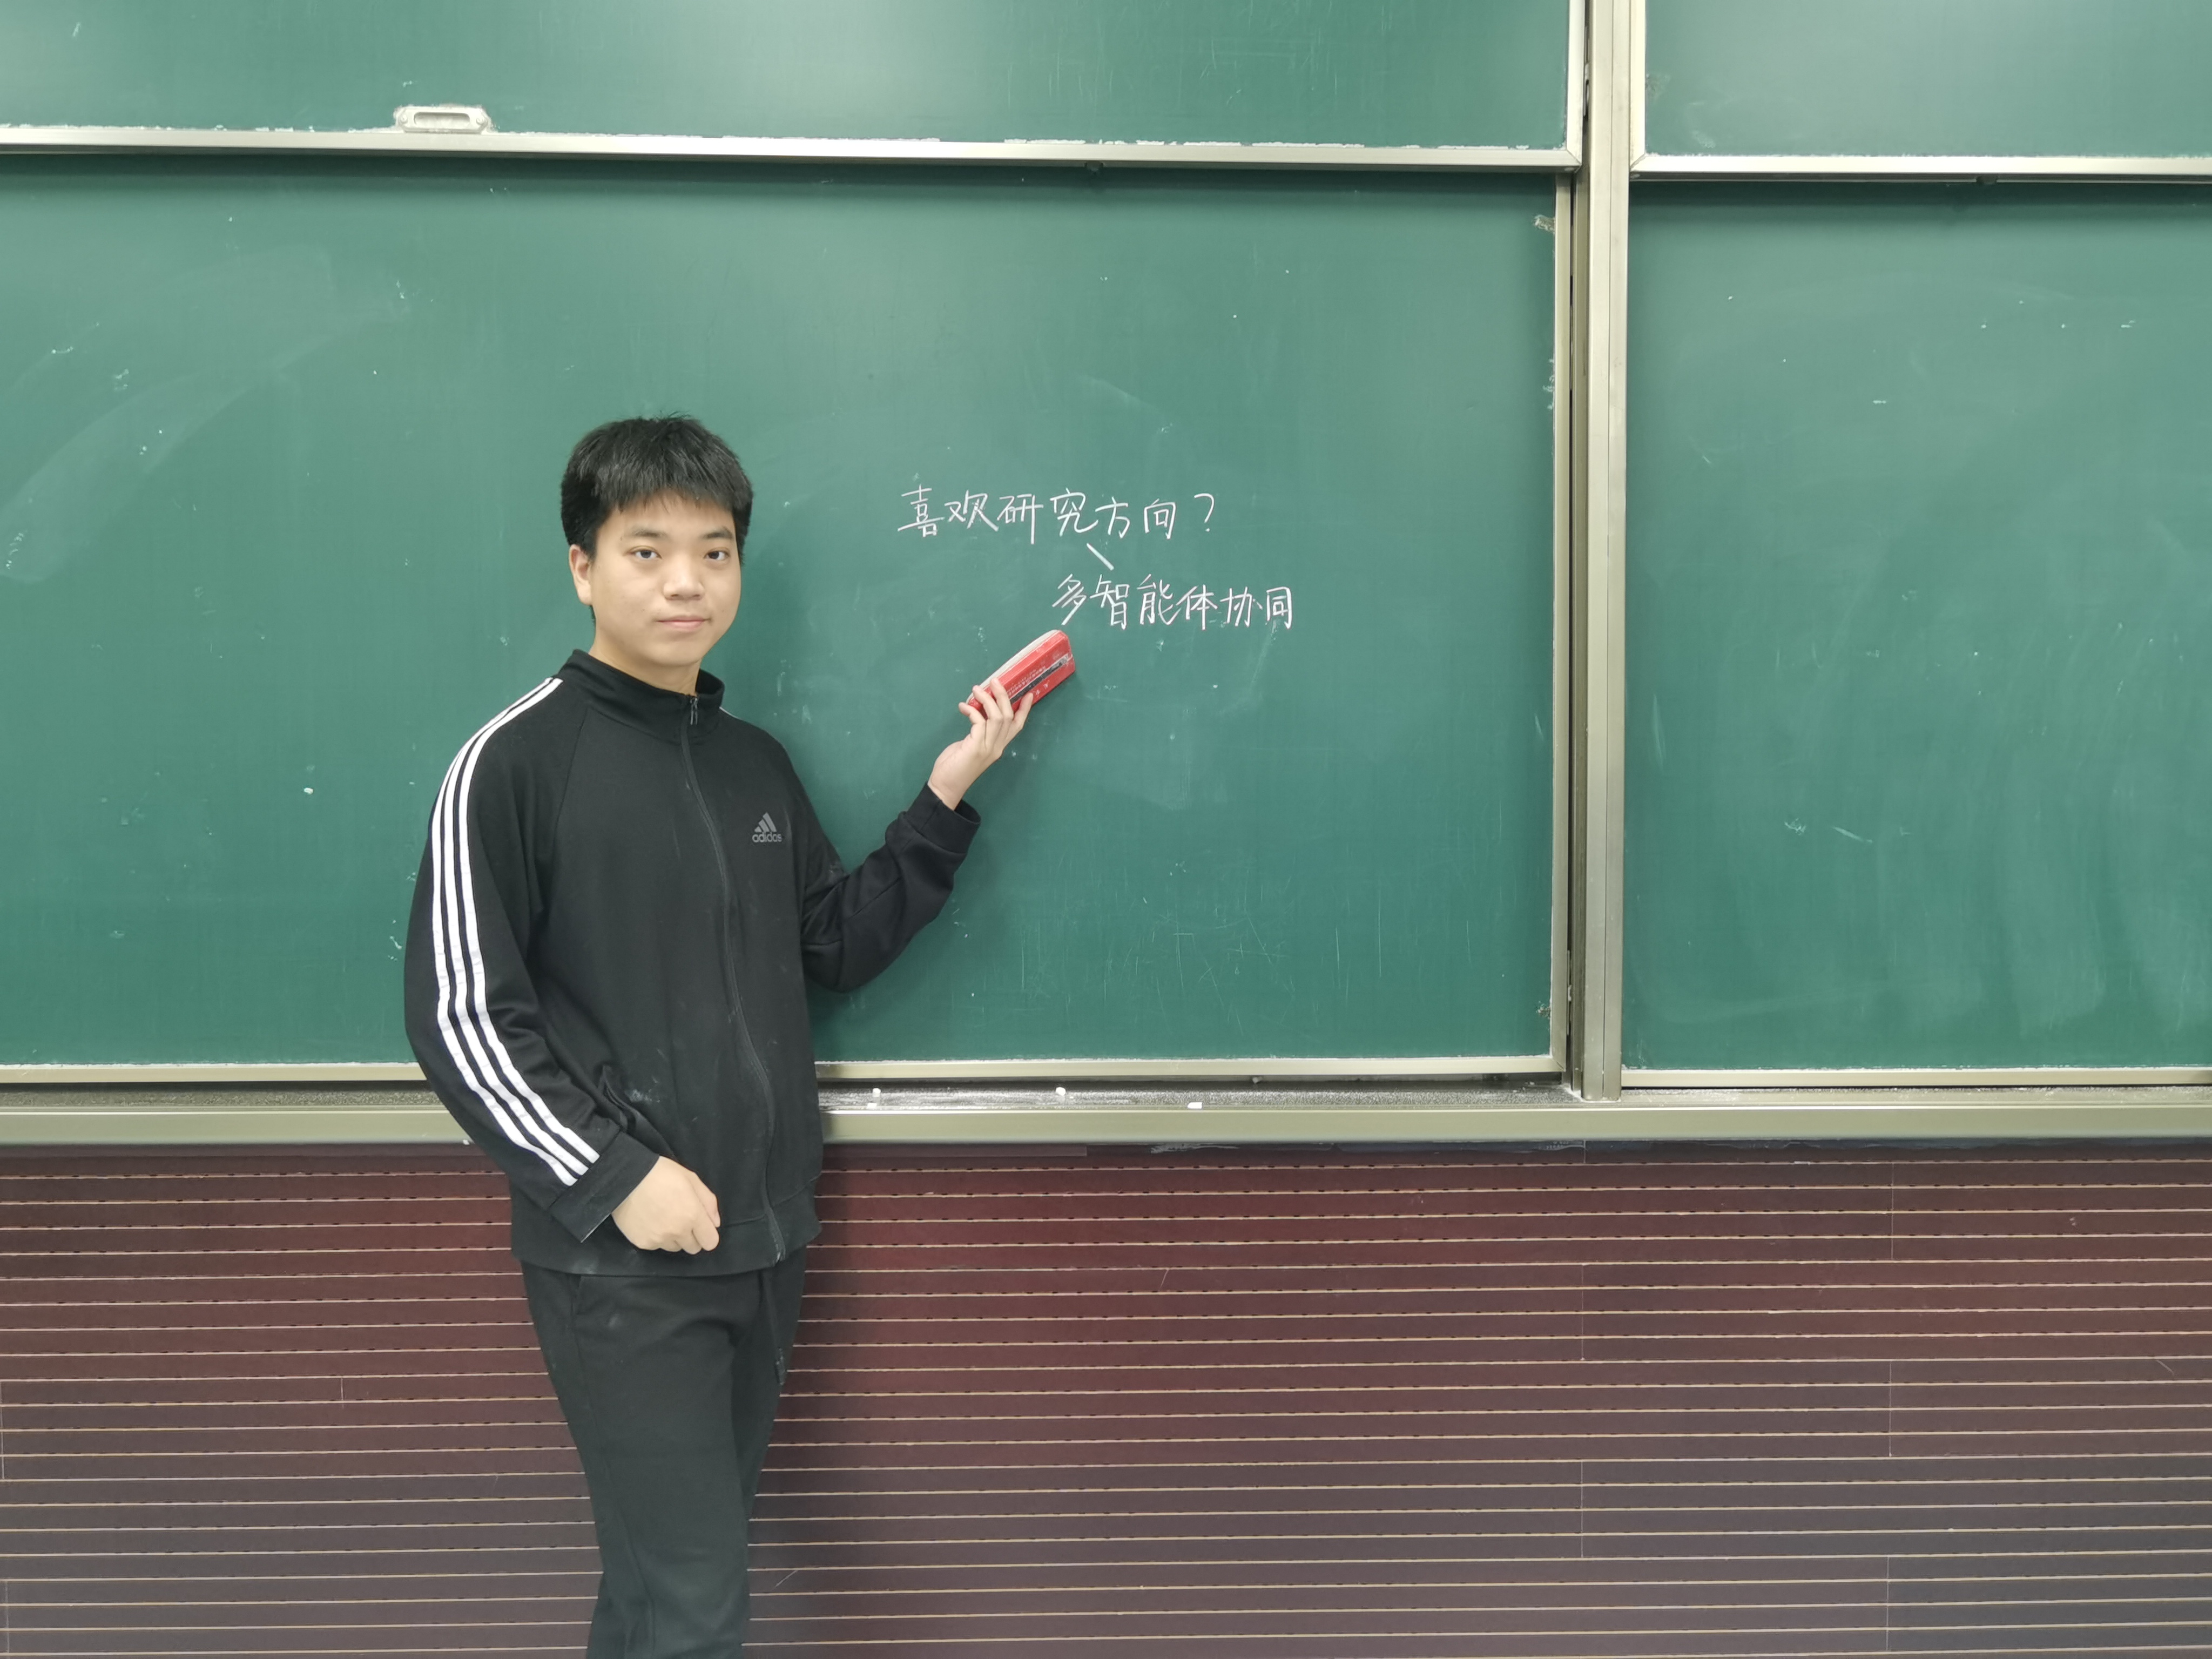 喜欢研究方向？
多智能体协同
adidas